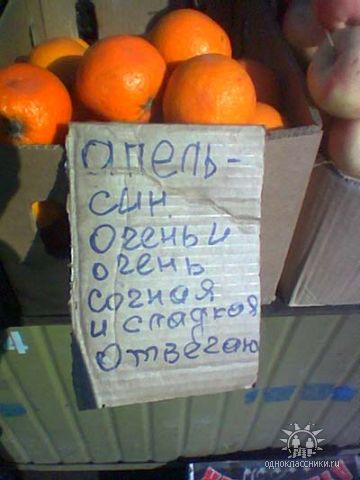 апель-
син
очень и
очень
сочная
и сладкая
отвечаю
4
одноклассники.ru